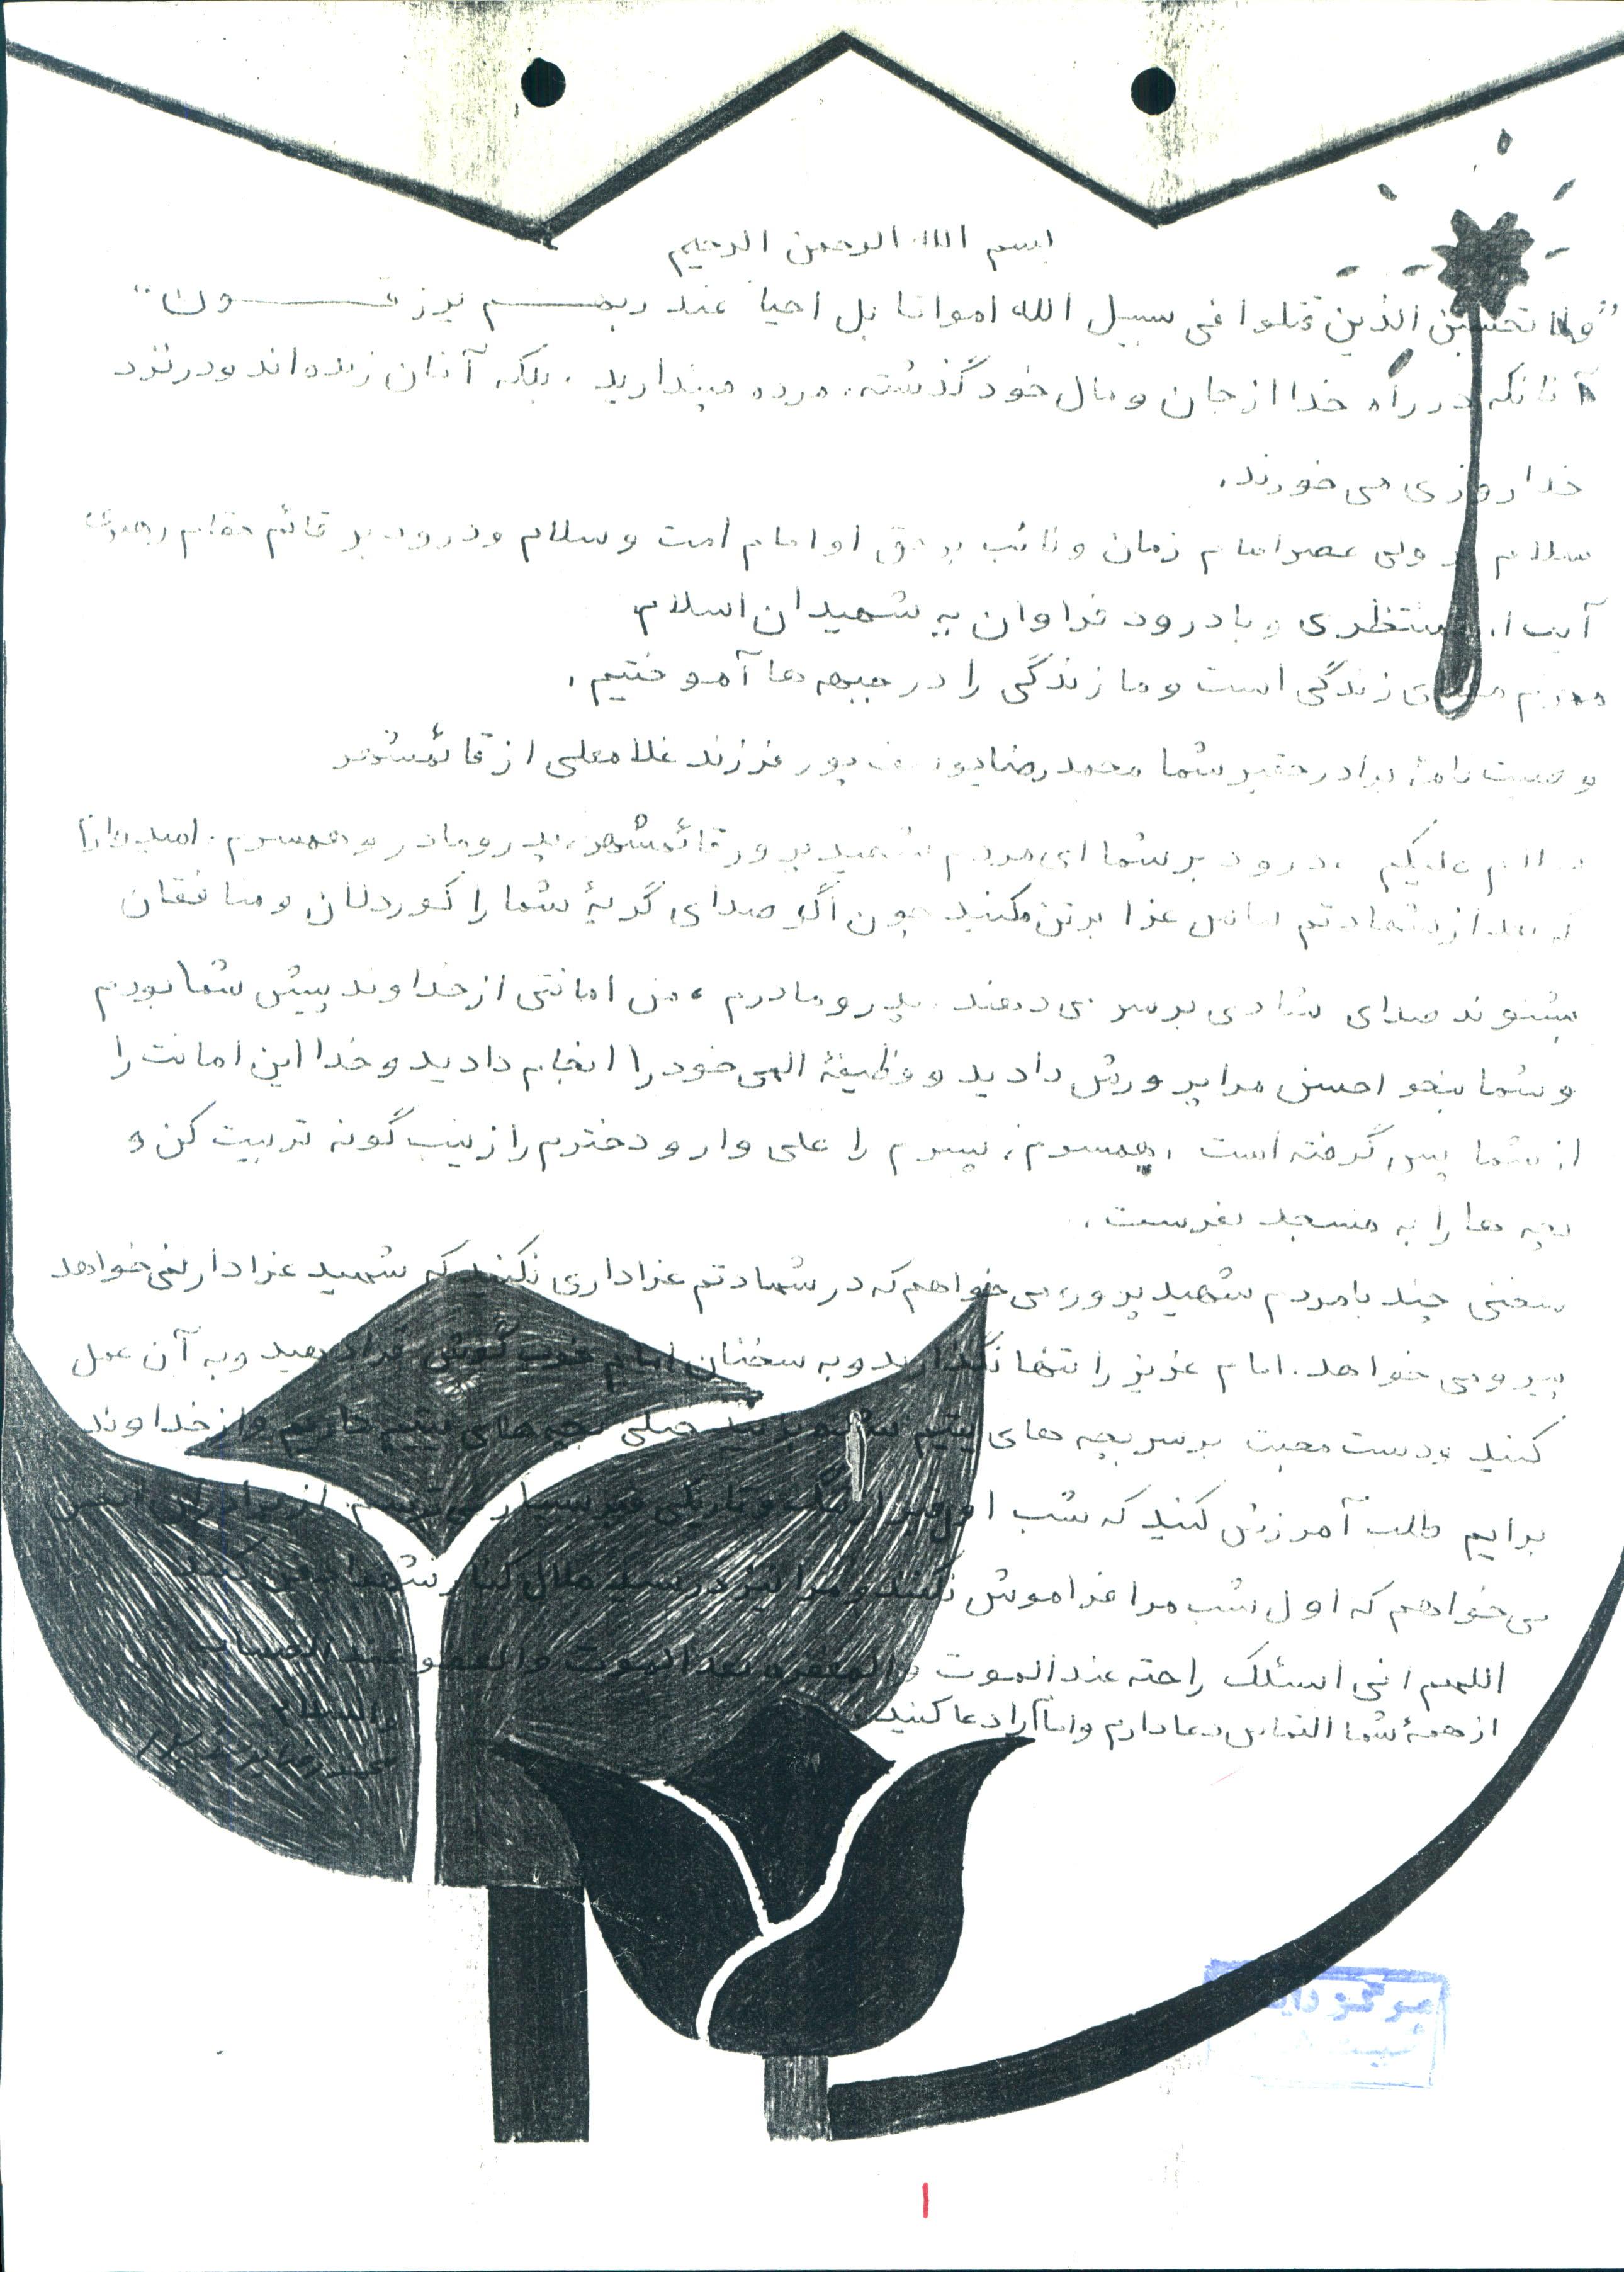 بسم الله الرحمن الرحیم
"ولا تحسبن الذین قتلوا فی سبیل الله امواتا بل احیا عند ربهم یرزقون"
آنانکه در راه خدا از جان و مال خود گذشته، مرده مپندارید. بلکه آنان زنده اند و در نزد
خدا روزی می خورند.
سلام بر ولی عصر امام زمان و نائب بر حق او امام امت و سلام و درود بر قائم مقام رهبری
آیت ا. منتظری و با درود فراوان به شهیدان اسلام
زندگی است و ما زندگی را در جبهه ها آموختیم.
وصیت نامهٔ برادر حقیر شما محمدرضا یوسف پور فرزند غلامعلی از قائمشهر
سلام علیکم، درود بر شما ای مردم شهید پرور قائمشهر، پدر و مادر و همسرم. امیدوارم
که بعد از شهادتم لباس عزا بر تن مکنید چون اگر صدای گریهٔ شما را کوردلان و منافقان
بشنوند صدای شادی بر سر می دهند. پدر و مادرم، من امانتی از خداوند پیش شما بودم
و شما بنحو احسن مرا پرورش دادید و وظیفهٔ الهی خود را انجام دادید و خدا این امانت را
از شما پس گرفته است. همسرم، پسرم را علی وار و دخترم را زینب گونه تربیت کن و
بچه ها را به مسجد بفرست.
سخنی چند با مردم شهید پرور، می خواهم که در شهادتم عزاداری نکنید که شهید عزادار نمی خواهد
پیرو می خواهد. امام عزیز را تنها نگذارید و به سخنان امام خوب گوش فرا دهید و به آن عمل
کنید و دست محبت بر سر بچه های یتیم بچه های یتیم داریم و از خداوند
برایم طلب آمرزش کنید که شب اول قبر و تاریکی قبر بسیار می ترسم. از برادران
می خواهم که اول شب مرا فراموش نکنند و مرا نیز در سید ملال کنار شهدا دفن کنید
اللهم انی اسئلک راحته عند الموت والمغفره بعد الموت والعفو عند الحساب
از همهٔ شما التماس دعا دارم و امام را دعا کنید.
والسلام
محمدرضا یوسف پور
مرکز
ثبت
۱